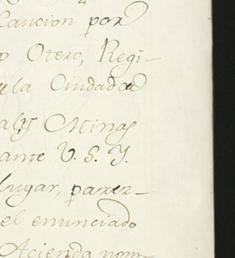 Cancion por
o Otero, Regi-
e la Ciudad
ales Minas
ante V. S. Y.
lugar, parez-
el enunciado
Acienda nom-